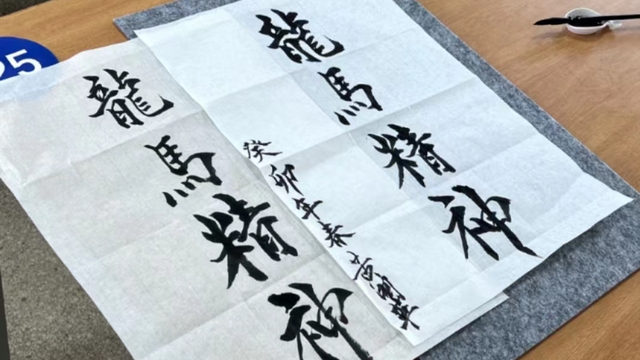 龍馬精神
癸卯年春
龍馬精神
25